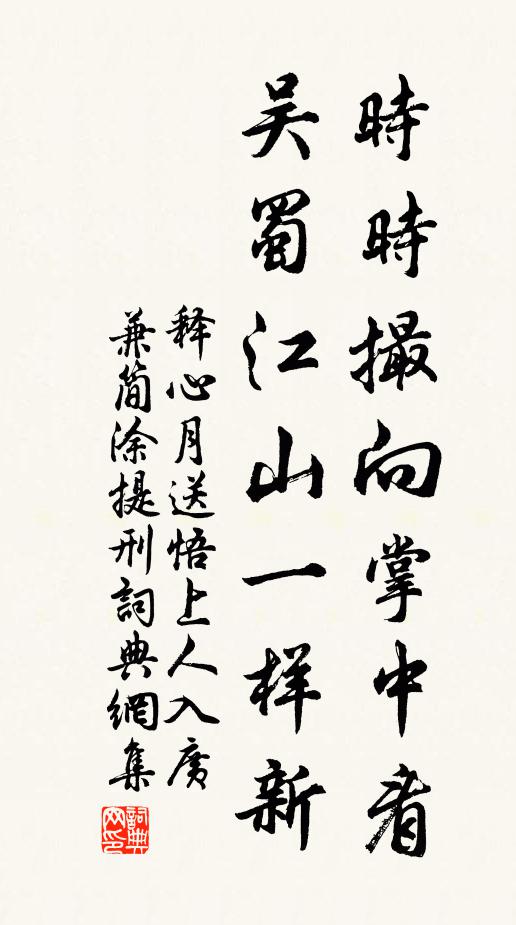 時時撮向掌中看
吴蜀江山一样新
释心月送悟上人入廣
兼简涂提刑詞典網集
詞典网印